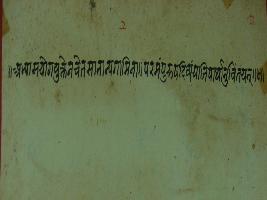 2
2
॥अभ्यासयोगयुक्तेनचेतसानान्यगामिना॥परमंपुरुषंदिव्यंयातिपार्थानुचिंतयन्॥८॥